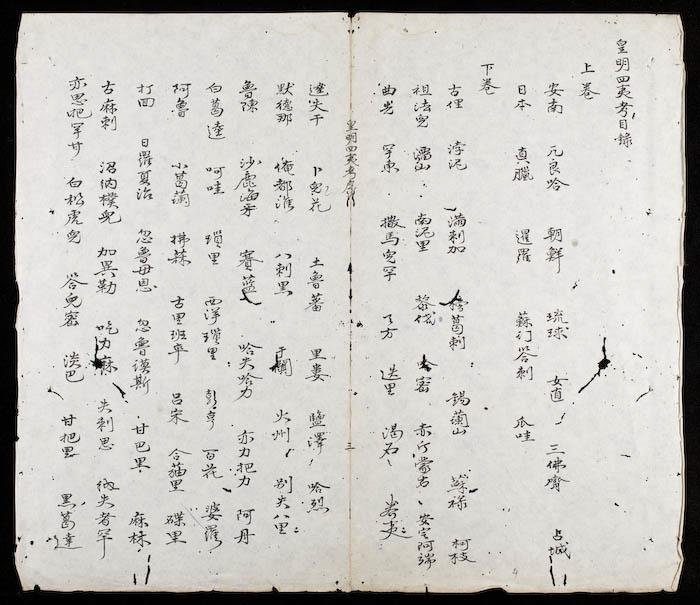 皇明四夷考目錄
上卷
安南 兀良哈 朝鮮 琉球 女直 三佛齊 占城
日本 真臘 暹羅 蘇門答剌 爪哇
下卷
古俚 浡泥 滿剌加 榜葛剌 錫蘭山 蘇祿 柯枝
祖法兒 溜山 南泥里 黎伐 哈密 赤斤蒙古 安定阿端
曲先 罕東 撒馬兒罕 天方 迭里 渴石 養夷
皇明四夷考序
三
達失干 卜兒花 土魯蕃 里婁 鹽澤 哈烈
默德那 俺都淮 八剌黑 于闐 火州 別失八里
魯陳 沙鹿海牙 賽藍 哈失哈力 亦力把力 阿丹
白葛達 呵哇 瑣里 西洋瑣里 彭亨 百花 婆羅
阿魯 小葛蘭 拂菻 古里班卒 呂宋 合貓里 碟里
打回 日羅夏治 忽魯母恩 忽魯謨斯 甘巴里 麻林
古麻剌 沼納樸兒 加異勒 吃力麻 失剌思 納失者罕
亦思把罕甘 白松虎兒 答兒密 淡巴 甘把里 黑葛達